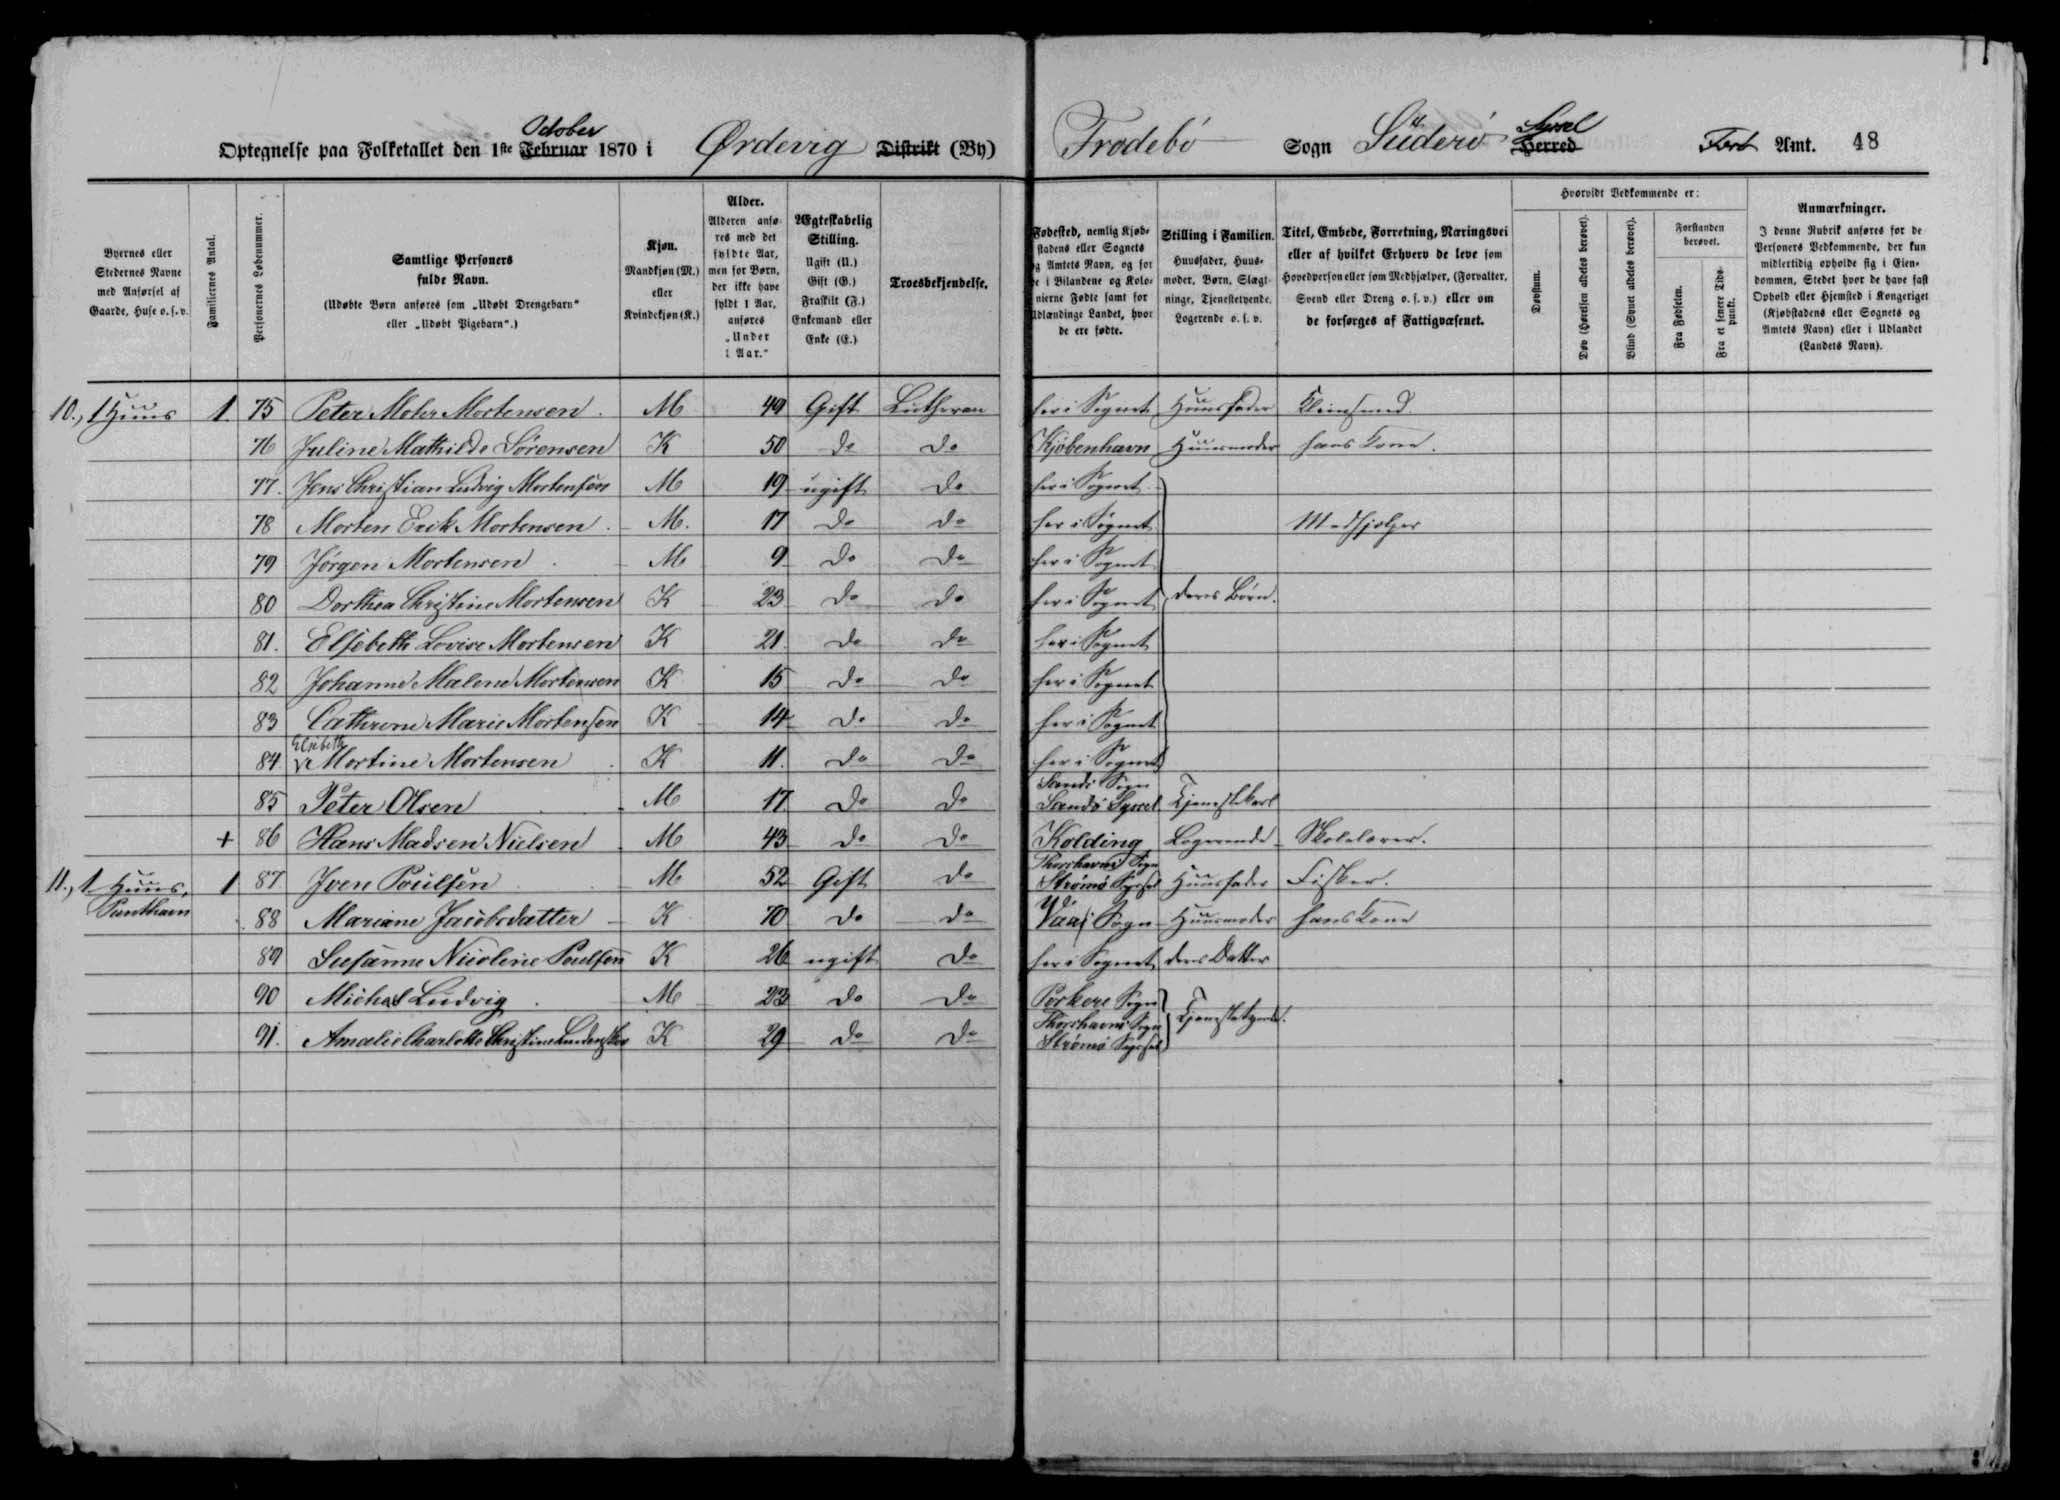 Optegnelse paa Folketallet den 1ste Februar October 1870 i Ørdevig Distrikt (By)
Frodebö Sogn Süderö Herred Syssel Amt. 48
Byernes eller Stedernes Navne med Anførsel af Gaarde, Huse o. s. v.
Familiernes Antal.
Personernes Løbenummer.
Samtlige Personers fulde Navn.
(Udøbte Børn anføres som „Udøbt Drengebarn“ eller „Udøbt Pigebarn“.)
Kjøn.
Mandkjøn (M.) eller Kvindekjøn (K.)
Alder.
Alderen anføres med det fyldte Aar, men for Børn, der ikke have fyldt 1 Aar, anføres „Under 1 Aar.“
Ægteskabelig Stilling.
Ugift (U.) Gift (G.) Fraskilt (F.) Enkemand eller Enke (E.)
Troesbekjendelse.
Fødested, nemlig Kjøbstadens eller Sognets og Amtets Navn, og for de i Bilandene og Kolonierne Fødte samt for Udlændinge Landet, hvor de ere fødte.
Stilling i Familien.
Huusfader, Huusmoder, Børn, Slægtninge, Tjenestetyende, Logerende o. s. v.
Titel, Embede, Forretning, Næringsvei eller af hvilket Erhverv de leve som Hovedperson eller som Medhjælper, (Forvalter, Svend eller Dreng o. s. v.) eller om de forsørges af Fattigvæsenet.
Hvorvidt Vedkommende er:
Døvstum.
Døv (Hørelsen aldeles berøvet).
Blind (Synet aldeles berøvet).
Forstanden berøvet.
Fra Fødselen.
Fra et senere Tidspunkt.
Anmærkninger.
I denne Rubrik anføres for de Personers Vedkommende, der kun midlertidig opholde sig i Eiendommen, Stedet hvor de have fast Ophold eller Hjemsted i Kongeriget (Kjøbstadens eller Sognets og Amtets Navn) eller i Udlandet (Landets Navn).
10., 1 Huus 1 75 Peter Mohr Mortensen. M 49 Gift Lutheran her i Sognet Huusfader
76 Juline Mathilde Sörensen K 50 do do Kjöbenhavn Huusmoder hans Kone.
77. Jens Christian Ludvig Mortensen M 19 ugift do her i Sognet
78 Morten Erik Mortensen. M. 17 do do her i Sognet Medhjelper
79 Jörgen Mortensen M 9 do do her i Sognet
80 Dorthea Christine Mortensen K 23 do do her i Sognet deres Börn.
81. Elsebeth Lovise Mortensen K 21 do do her i Sognet
82 Johanne Malene Mortensen K 15 do do her i Sognet
83 Cathrine Marie Mortensen K 14 do do her i Sognet
84 Elsebeth Mortine Mortensen K 11. do do her i Sognet
85 Peter Olsen M 17 do do Sands Sogn Sandö Syssel Tjenestekarl
+ 86 Hans Madsen Nielsen M 43 do do Kolding Logerende Skolelærer.
11., 1 Huus, 1 87 Joen Poulsen M 52 Gift do Thorshavns Sogn Strömö Syssel Huusfader Fisker.
88 Mariane Jacobsdatter K 70 do do Vaais Sogn Huusmoder hans Kone
89 Susanne Nicoline Poulsen K 26 ugift do her i Sognet deres Datter
90 Michal Ludvig M 23 do do Porkere Sogn Tjenestetyende.
91. Amalie Charlotte Christine K 29 do do Thorshavns Sogn Strömö Syssel